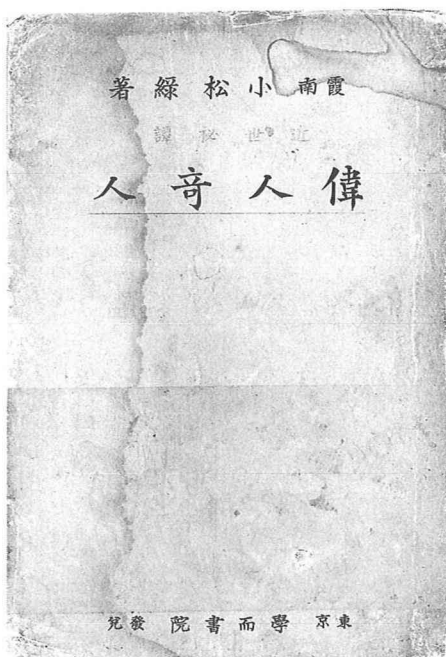 霞南 小松緑著
近世秘譚
偉人奇人
東京 學而書院 發兌